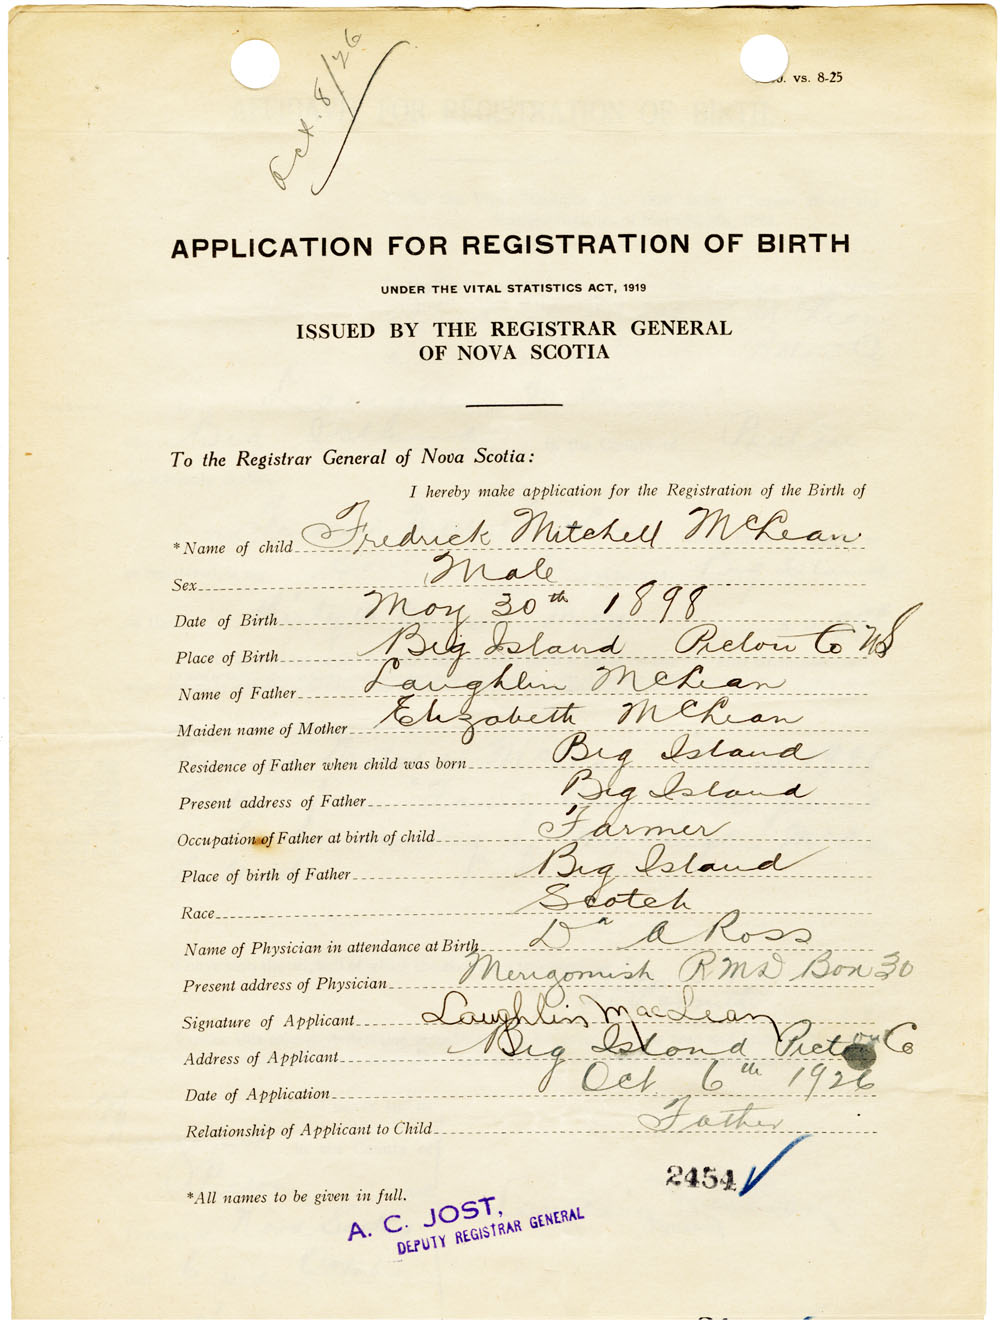 Oct. 8/26
vs. 8-25
APPLICATION FOR REGISTRATION OF BIRTH
UNDER THE VITAL STATISTICS ACT, 1919
ISSUED BY THE REGISTRAR GENERAL
OF NOVA SCOTIA
To the Registrar General of Nova Scotia:
I hereby make application for the Registration of the Birth of
*Name of child Fredrick Mitchell McLean
Sex Male
Date of Birth May 30th 1898
Place of Birth Big Island Pictou Co NS
Name of Father Laughlin McLean
Maiden name of Mother Elizabeth McLean
Residence of Father when child was born Big Island
Present address of Father Big Island
Occupation of Father at birth of child Farmer
Place of birth of Father Big Island
Race Scotch
Name of Physician in attendance at Birth Dr A Ross
Present address of Physician Merigomish RMD Box 30
Signature of Applicant Laughlin MacLean
Address of Applicant Big Island Pictou Co
Date of Application Oct 6th 1926
Relationship of Applicant to Child Father
2454
*All names to be given in full.
A. C. JOST,
DEPUTY REGISTRAR GENERAL